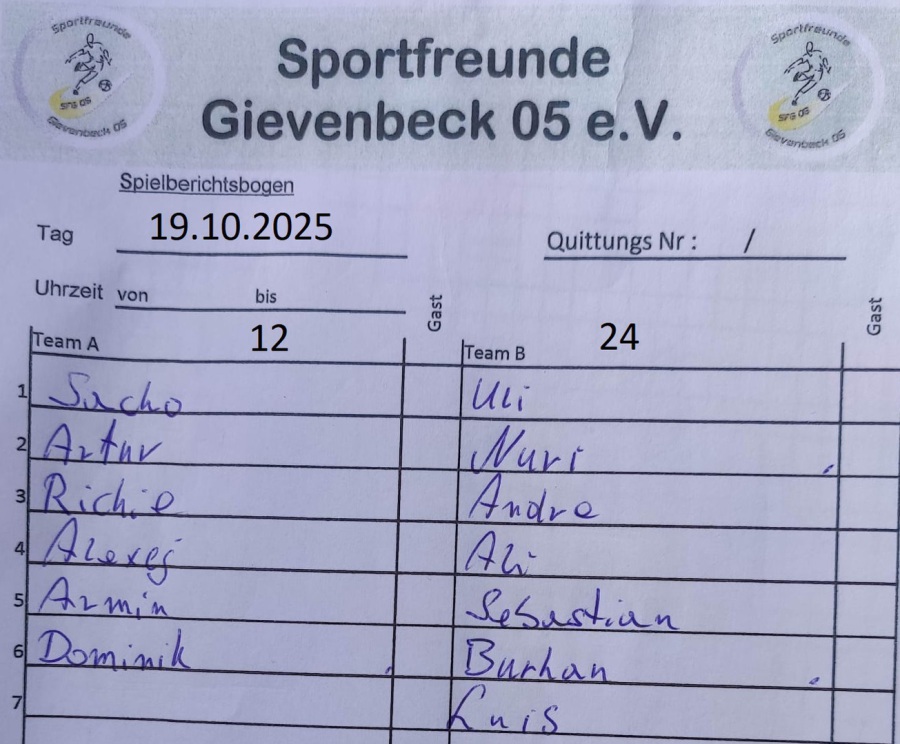 Sportfreunde
SFG 05
Gievenbeck 05
Sportfreunde
Gievenbeck 05 e.V.
Sportfreunde
SFG 05
Gievenbeck 05
Spielberichtsbogen
Tag 19.10.2025 Quittungs Nr : /
Uhrzeit von bis Gast Gast
Team A 12 Team B 24
1 Sacho Uli
2 Artur Nuri
3 Richie Andre
4 Alexej Ali
5 Armin Sebastian
6 Dominik Burhan
7 Luis